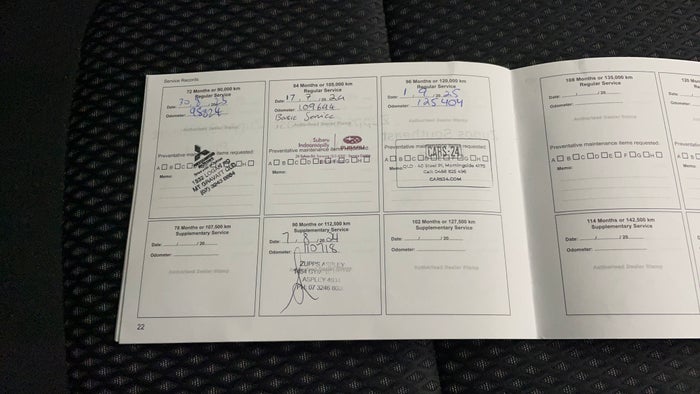 Service Records
72 Months or 90,000 km
Regular Service
Date:
Odometer: 95824
Authorised Dealer Stamp
Preventative maintenance items requested:
Memo:
1932 LOGAN RD
MT GRAVATT
84 Months or 105,000 km
Regular Service
Date: 17, 7, 2024
Odometer: 109644
Basic Service
Subaru
Indooroopilly
SUBARU
Preventative maintenance items requested:
A B C D E F G H
Memo:
96 Months or 120,000 km
Regular Service
Date: 1, 9, 2025
Odometer: 125404
Preventative maintenance items requested:
CARS-24
QLD: 40 Steel Pl, Morningside 4170
CARS24.COM
78 Months or 107,500 km
Supplementary Service
Date: / / 20
Odometer:
Authorised Dealer Stamp
90 Months or 112,500 km
Supplementary Service
Date: 7, 8, 2024
Odometer: 110718
ZUPPS ASPLEY
ASPLEY 4034
102 Months or 127,500 km
Supplementary Service
Date: / / 20
Odometer:
Authorised Dealer Stamp
22
108 Months or 135,000 km
Regular Service
Date: / / 20
Odometer:
Authorised Dealer Stamp
Preventative maintenance items requested:
A B C D E F G H
Memo:
114 Months or 142,500 km
Supplementary Service
Date: / / 20
Odometer:
Authorised Dealer Stamp